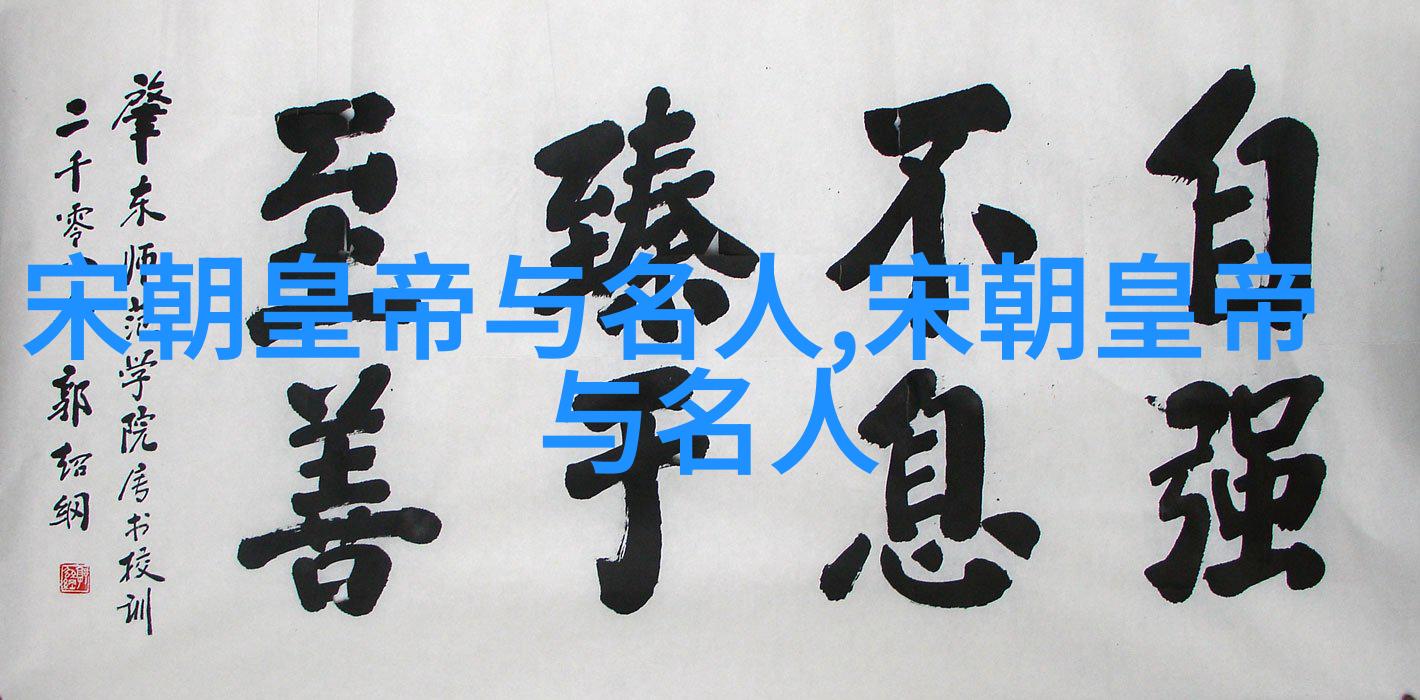 宋朝皇帝与名人,宋朝皇帝
与名人
自强
不息
臻于
至善
肇东师范学院书校训
二千零
郭绍纲